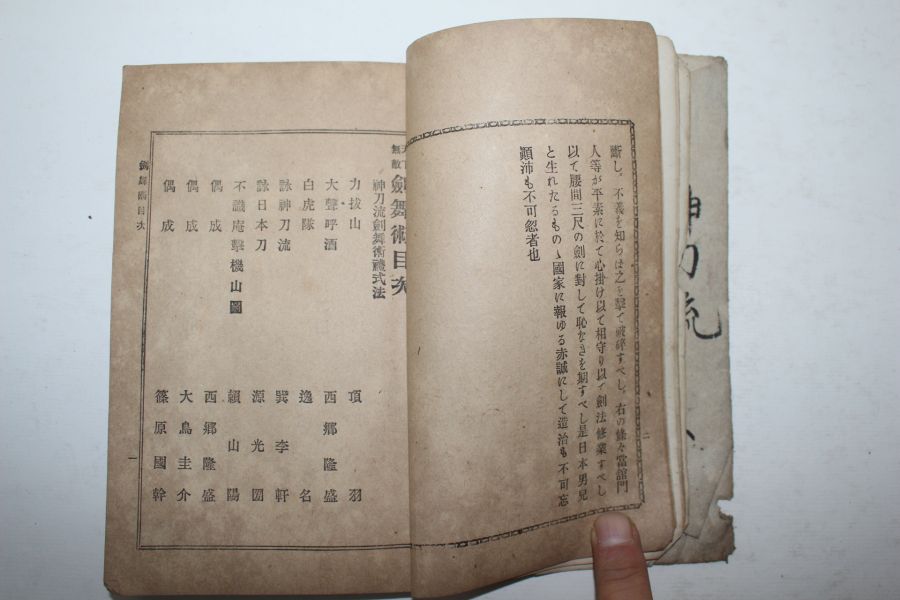 神刀流
斷し、不義を知らば之を撃て破碎すべし。右の條々當舘門
人等が平素に於て心掛け以て相守り以て劍法修業すべし
以て腰間三尺の劍に對して恥なきを期すべし是日本男兒
と生れたるものゝ國家に報ゆる赤誠にして造次も不可忘
顚沛も不可忽者也
二
無敵 劍舞術目次
神刀流劍舞術禮式法
力拔山 項羽
大聲呼酒 西鄕隆盛
白虎隊 逸名
詠神刀流 巽李軒
詠日本刀 源光圀
不識庵擊機山圖 賴山陽
偶成 西鄕隆盛
偶成 大鳥圭介
偶成 篠原國幹
劍舞術目次
一